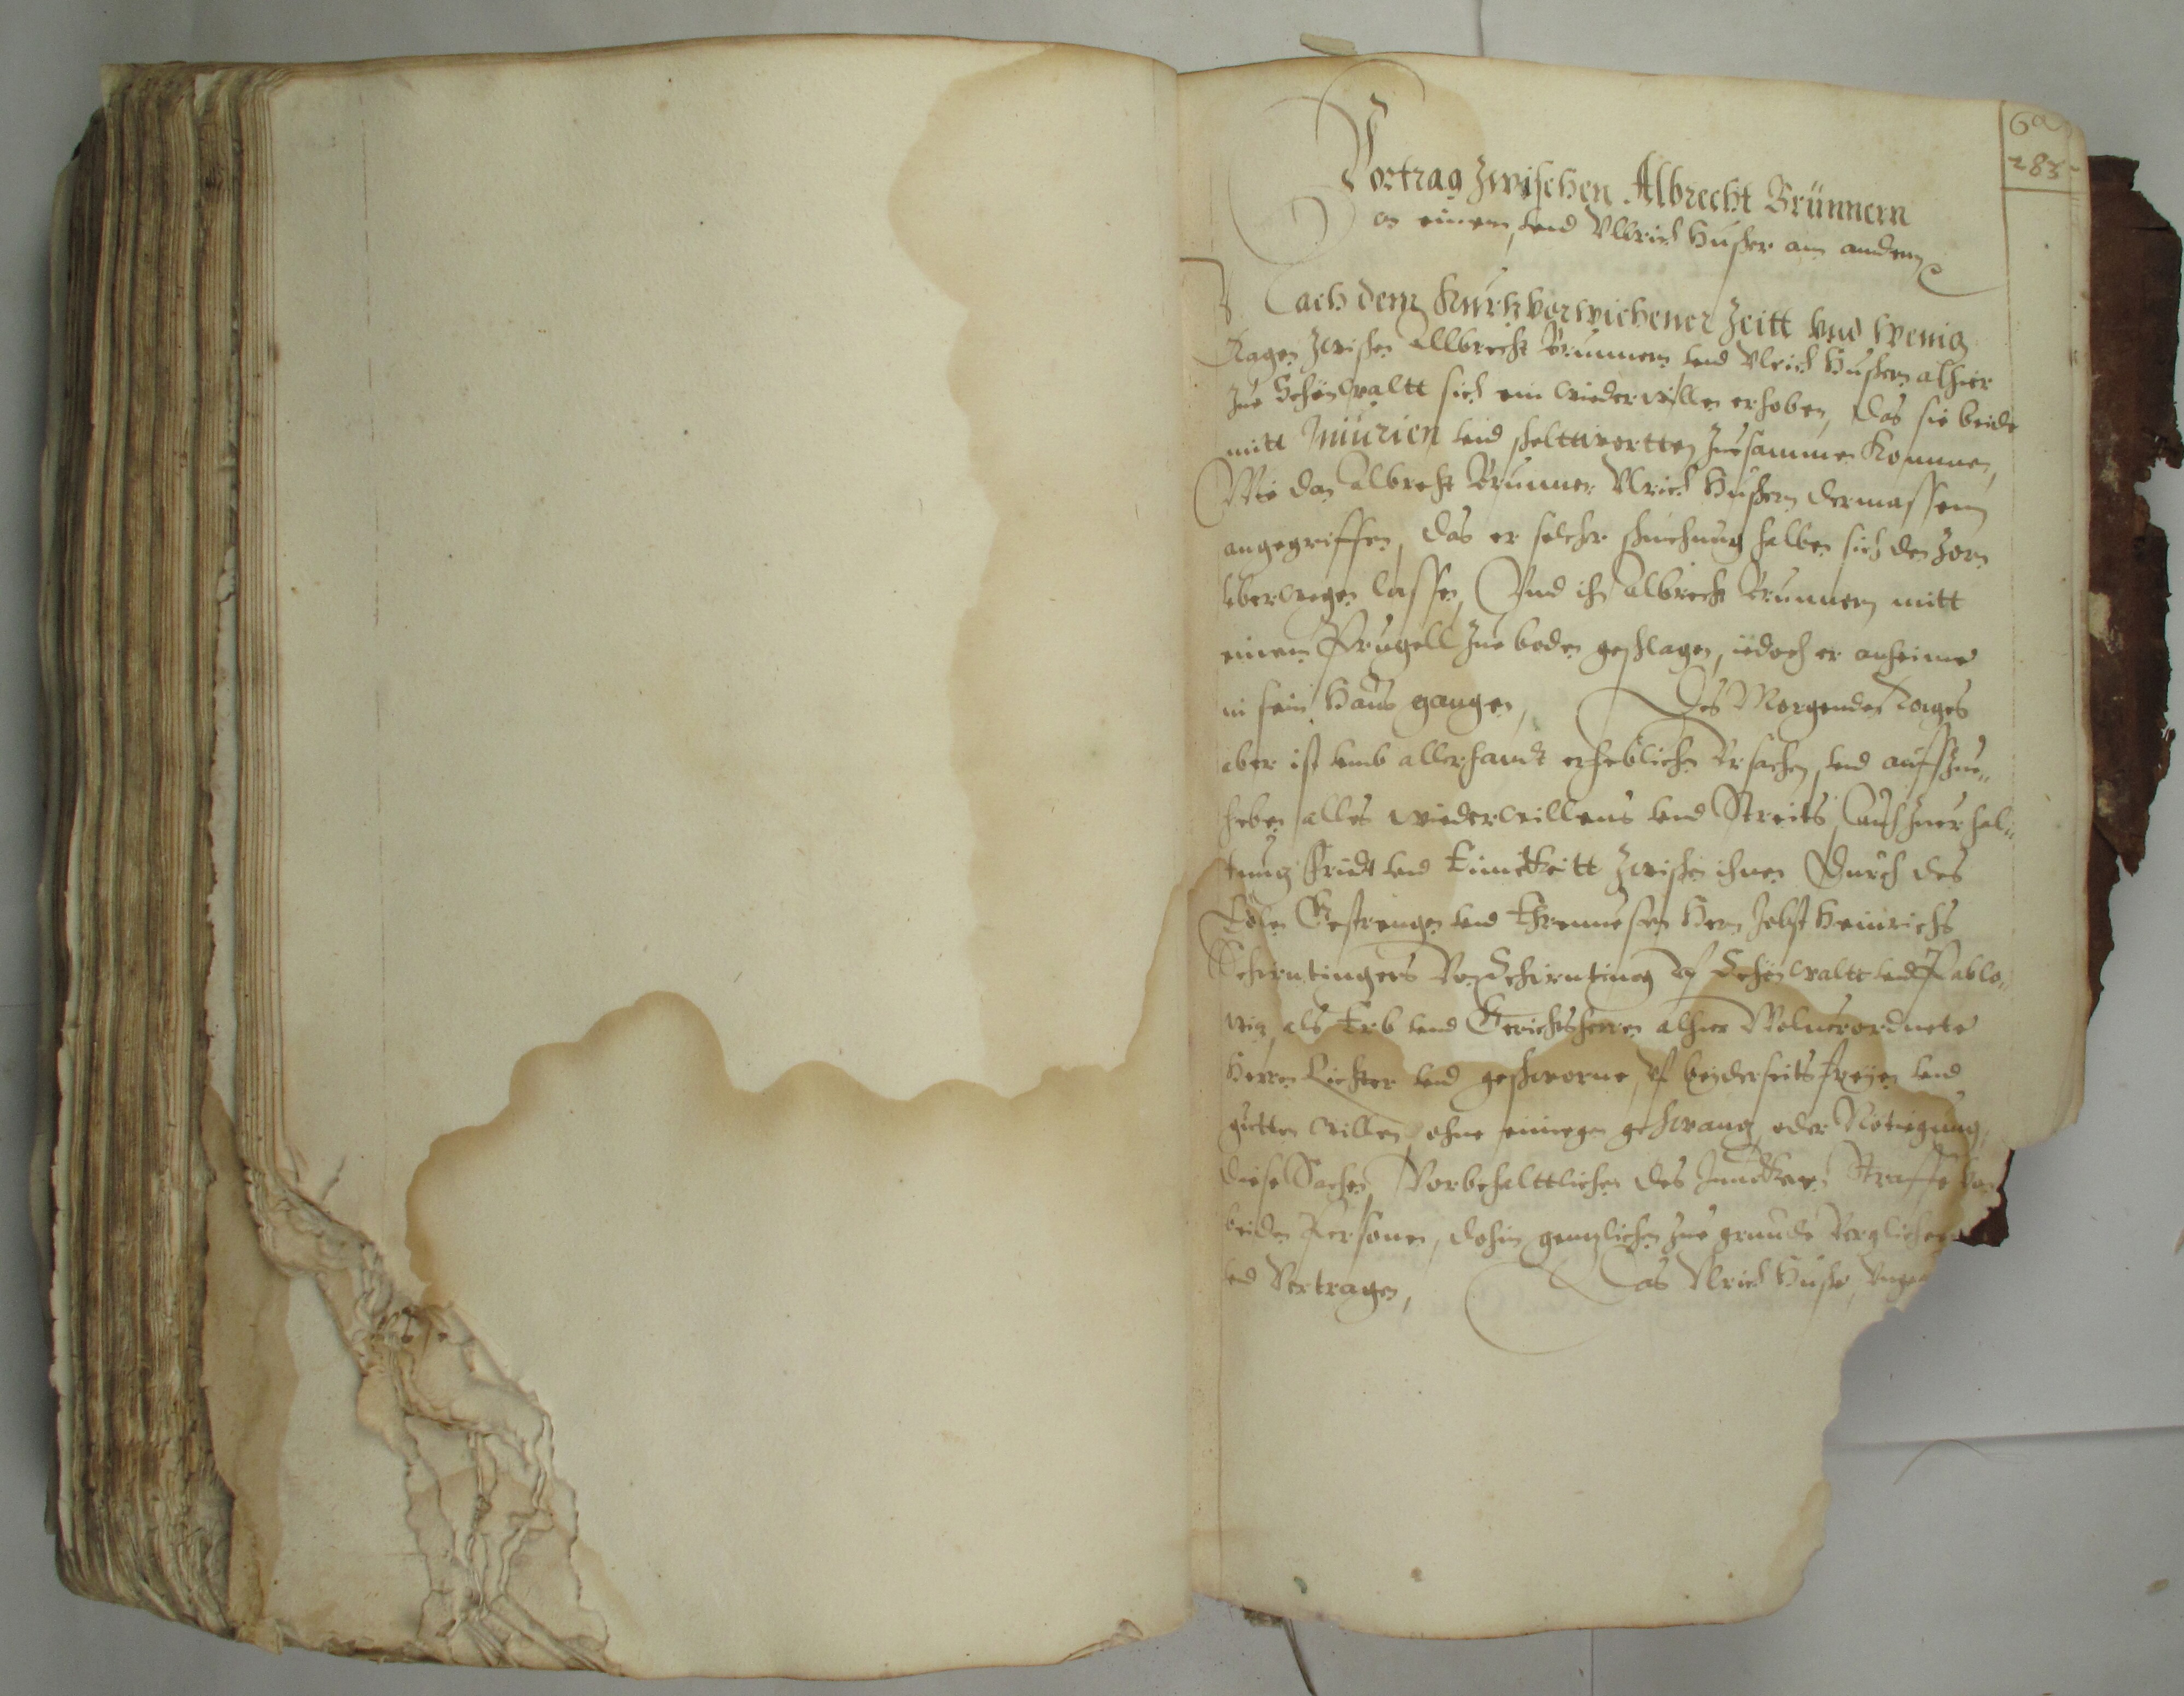 283
Vortrag zwischen Albrecht Brünnern
an einem, vnd Vlrich Husker am andern
Nach dem Kurtz vorwichener Zeitt vnd wenig
Tagen zwischen Albrecht Brunnern vnd Vlrich Huskern alhier
zue Schönwaltt sich ein wiederwillen erhoben, das sie beide
mitt Iniurien vnd scheltworten zusammen kommen,
Wie dan Albrecht Brunner Vlrich Huskern dermassen
angegriffen, das er solcher schmehung halben sich den Zorn
vberwegen lassen, Vnd ihn Albrecht Brunnern mitt
einem Prugell zue boden geschlagen, iedoch er anheimb
in sein Haus gangen, Des Morgenden Tages
aber ist vmb allerhandt erheblichen Vrsachen, vnd auffzue„
heben alles wiederwillens vnd Streits, auch zuerhal„
tung Fridt vnd Einickeitt zwischen ihnen Durch des
Edlen Gestrengen vnd Ehrenuesten Herrn Jobst Heinrichs
Schirntingers Von Schirnting vf Schönwaltt vnd Pablo„
wiz, als Erb vnd Gerichtsherrn alhier Wolverordnete
Herrn Richter vnd geschworne, vf beyderseits freyen vnd
gutten willen, ohne einigen gezwang oder Nötigung,
diese Sachen, Vorbehalttlichen des Junckern Straffe von
beiden Personen, dohin gentzlichen zue grunde Verglichen
vnd Vertragen, Das Vlrich Husker